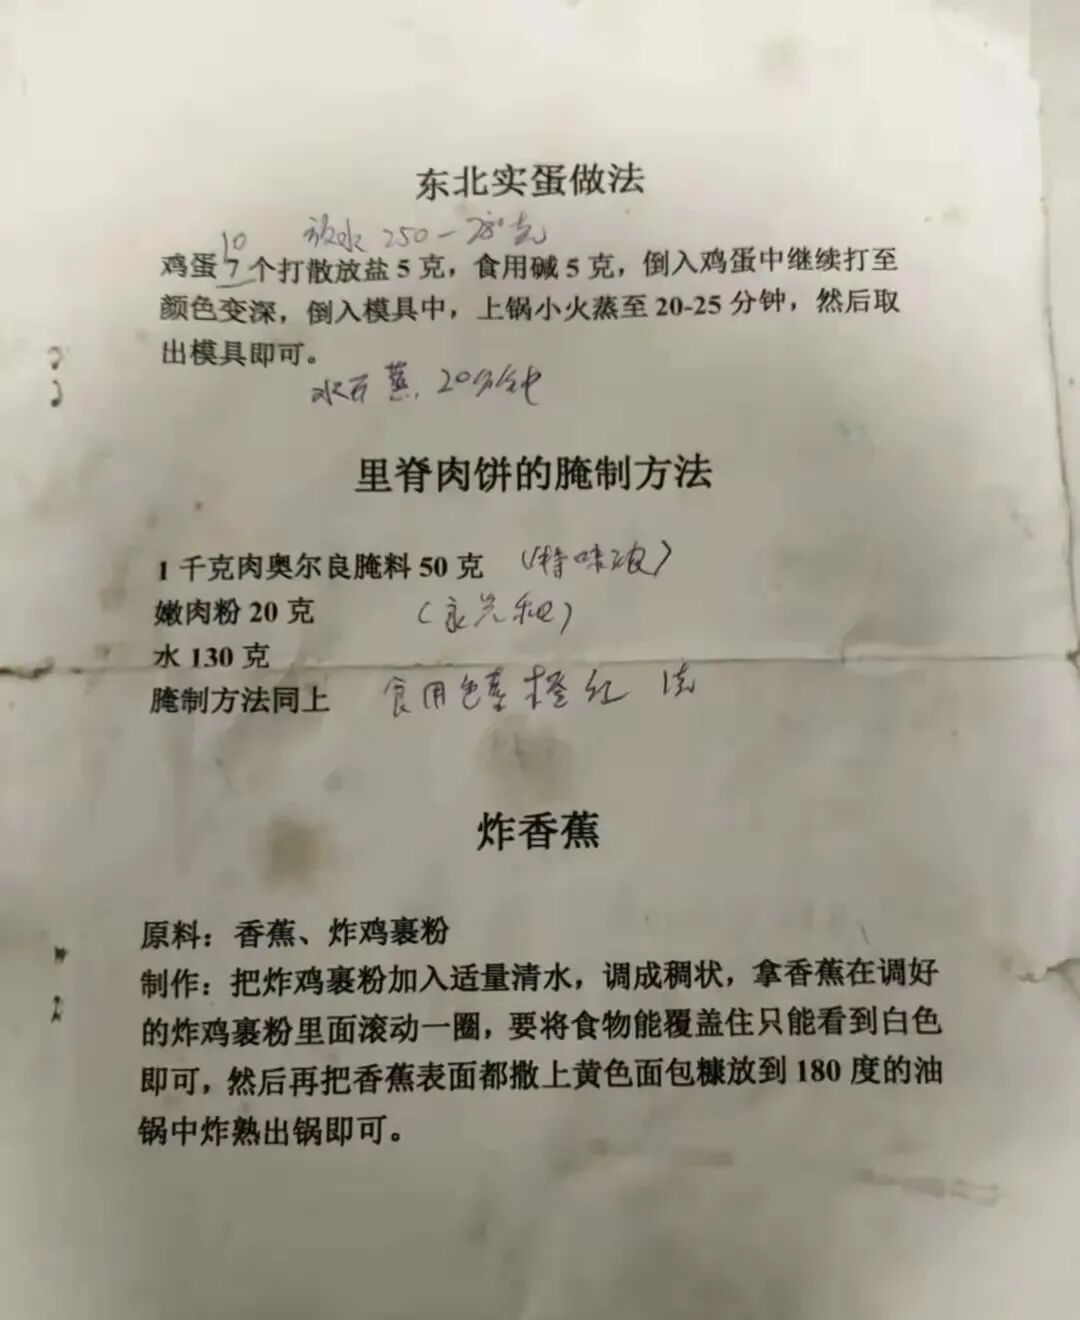 东北实蛋做法
10 放水 250-280克
鸡蛋 7 个打散放盐 5 克，食用碱 5 克，倒入鸡蛋中继续打至
颜色变深，倒入模具中，上锅小火蒸至 20-25 分钟，然后取
出模具即可。
水开蒸 20分钟
里脊肉饼的腌制方法
1 千克肉奥尔良腌料 50 克
嫩肉粉 20 克
水 130 克
腌制方法同上 食用色素 橙红
炸香蕉
原料：香蕉、炸鸡裹粉
制作：把炸鸡裹粉加入适量清水，调成稠状，拿香蕉在调好
的炸鸡裹粉里面滚动一圈，要将食物能覆盖住只能看到白色
即可，然后再把香蕉表面都撒上黄色面包糠放到 180 度的油
锅中炸熟出锅即可。